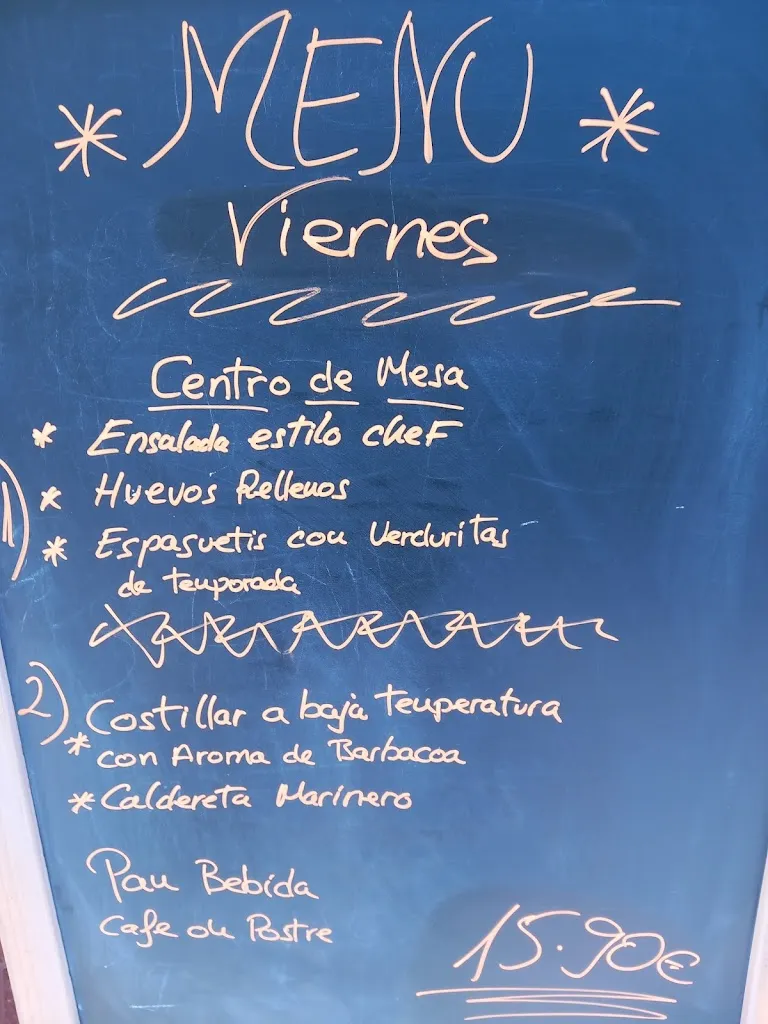 * MENU *
Viernes
Centro de Mesa
* Ensalada estilo cheF
1) * Huevos Rellenos
* Espaguetis con Verduritas
de temporada
2) Costillar a baja temperatura
* con Aroma de Barbacoa
* Caldereta Marinero
Pan Bebida
Cafe ou Postre
15.90€